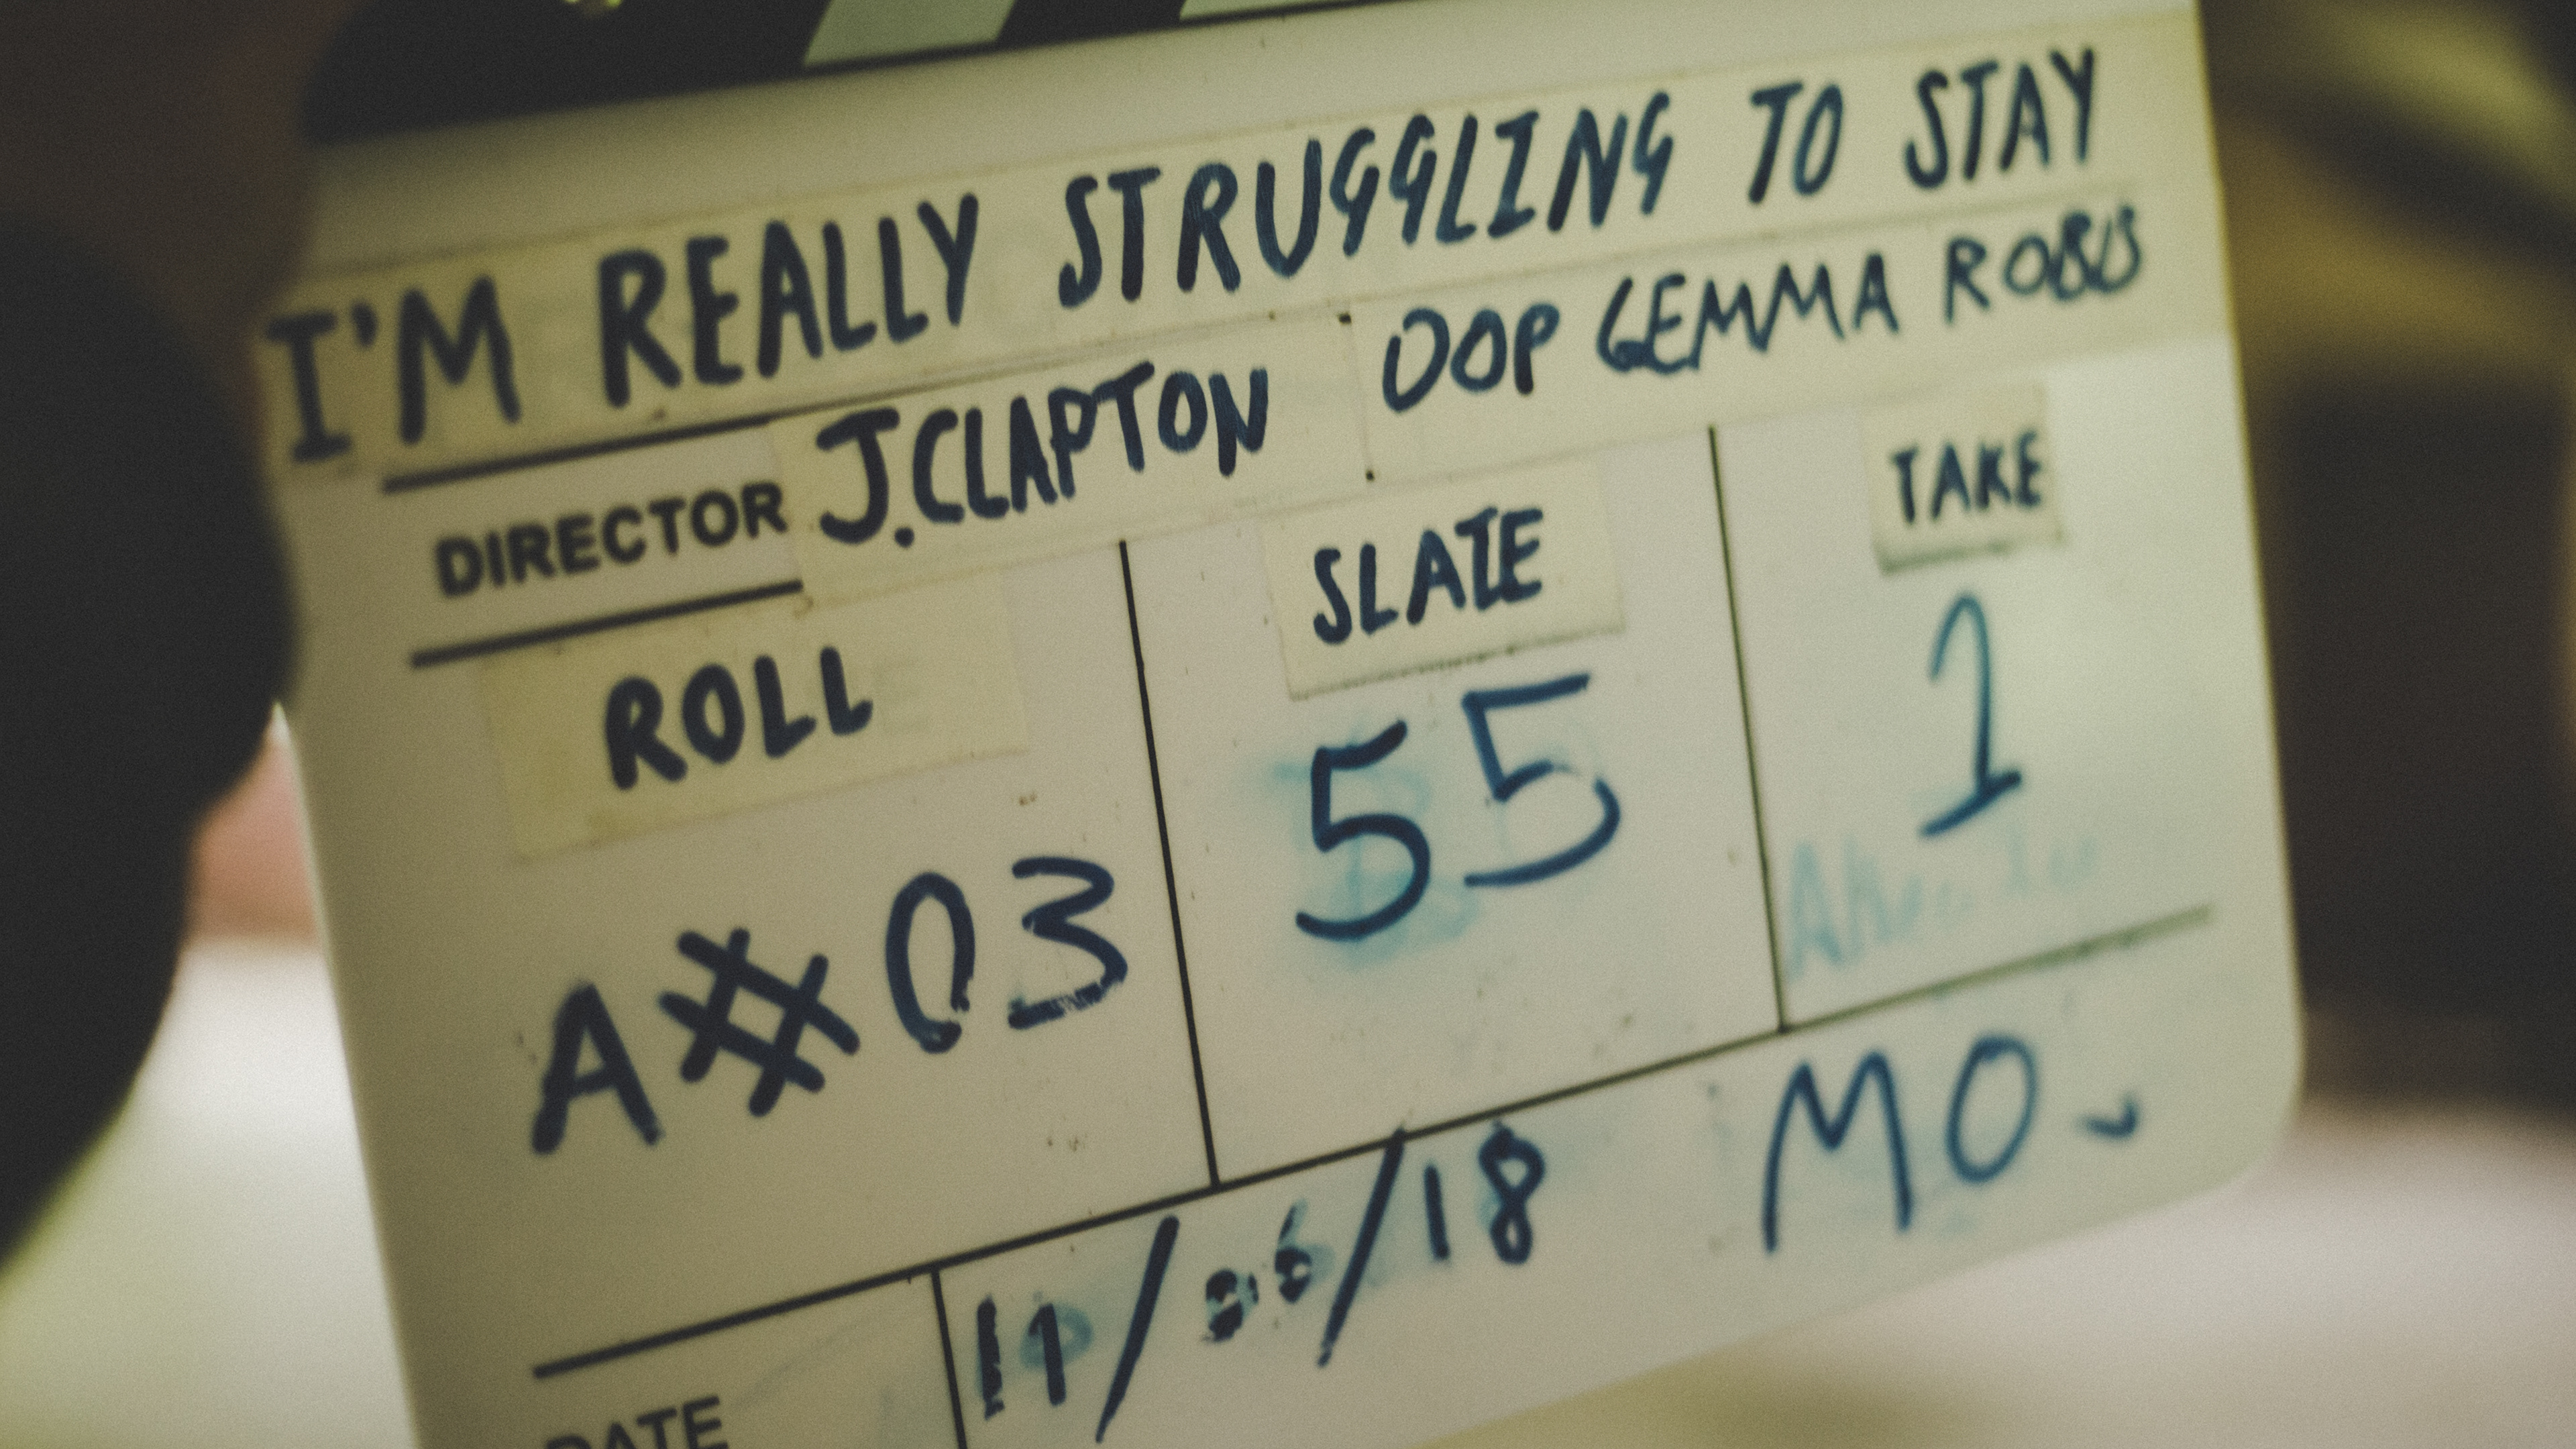 I'M REALLY STRUGGLING TO STAY
DIRECTOR J.CLAPTON DOP GEMMA
ROLL SLATE TAKE
A# 03 55 1
DATE 11/06/18 MO